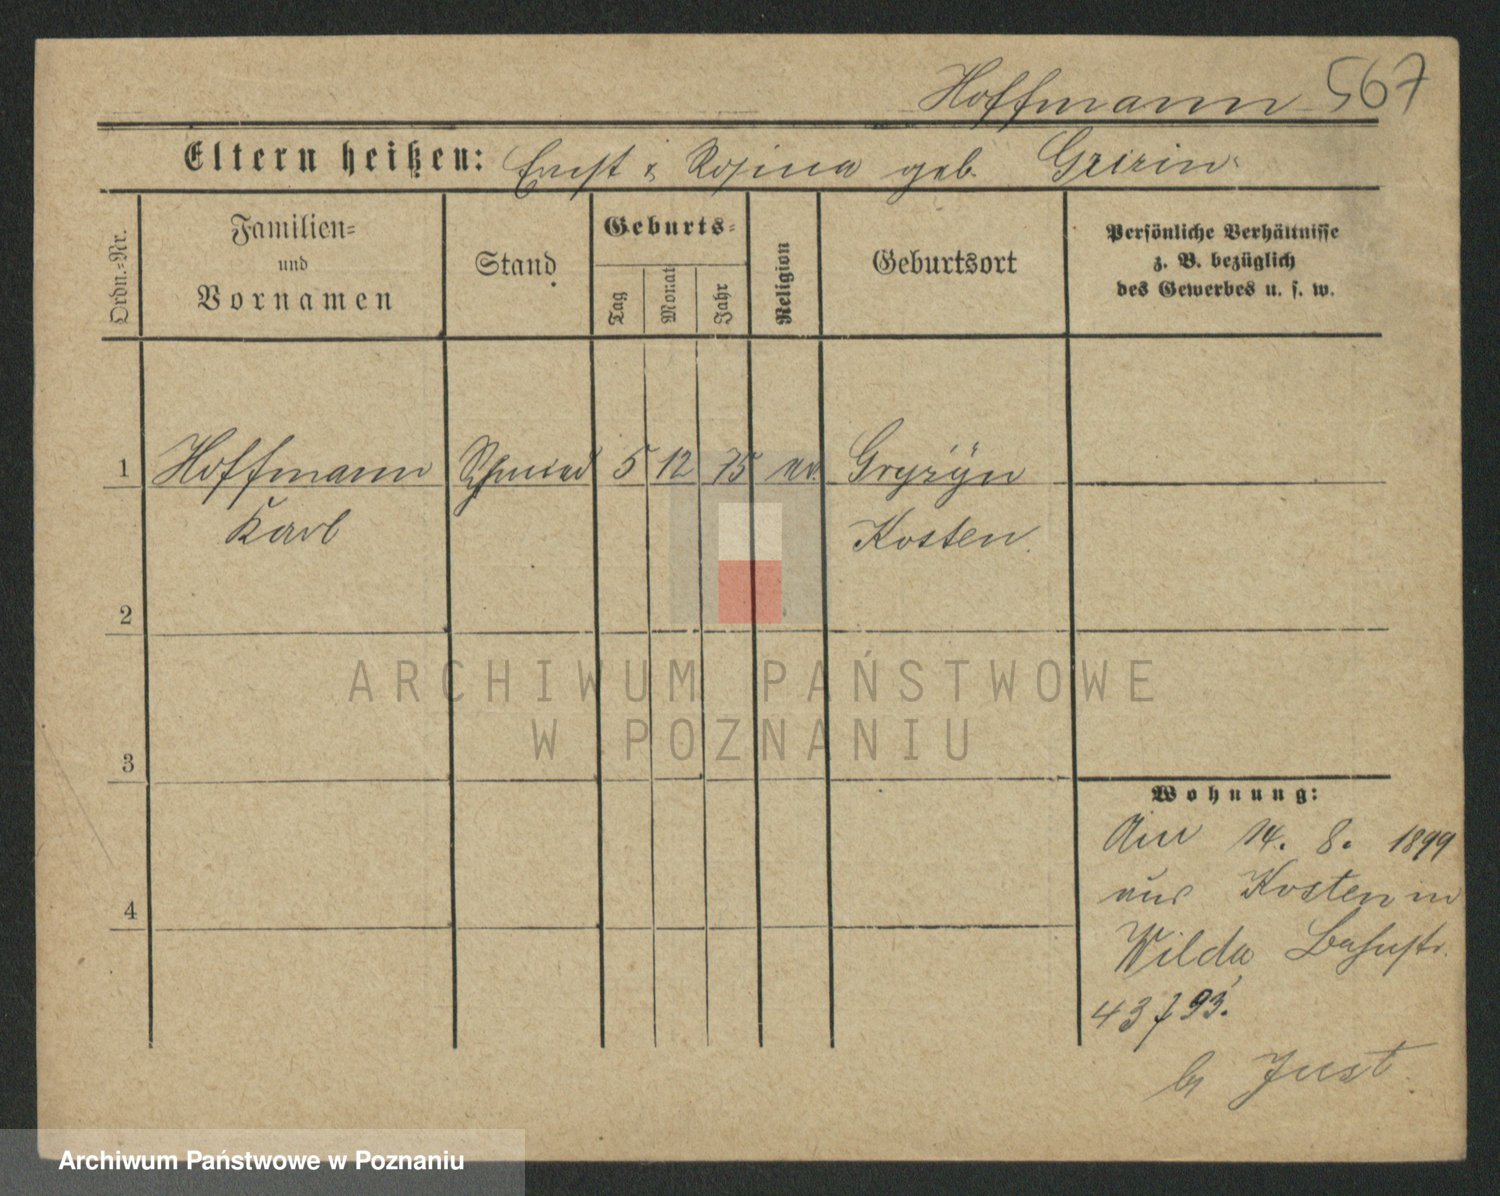 Hoffmann 567
Eltern heißen: Ernst & Rosina geb. Gririn
Ordn.=Nr.
Familien=
und
Vornamen
Stand
Geburts=
Tag
Monat
Jahr
Religion
Geburtsort
Persönliche Verhältnisse
z. B. bezüglich
des Gewerbes u. s. w.
1 Hoffmann Schmied 5 12 75 ev. Gryzyn
Karl Kosten
2
3
4
Wohnung:
Am 14. 8. 1899
aus Kosten in
Wilda, Bahnstr.
43/93.
b/ Just
ARCHIWUM PAŃSTWOWE
W POZNANIU
Archiwum Państwowe w Poznaniu